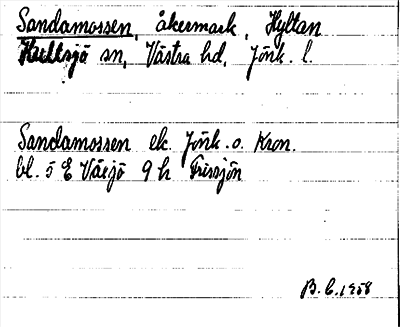 Sandamossen, åkermark, Hyltan
Hultsjö sn, Västra hd, Jönk. l.
Sandamossen ek. Jönk. o. Kron.
bl. 5 E Växjö 9 h Frissjön
B. C. 1958